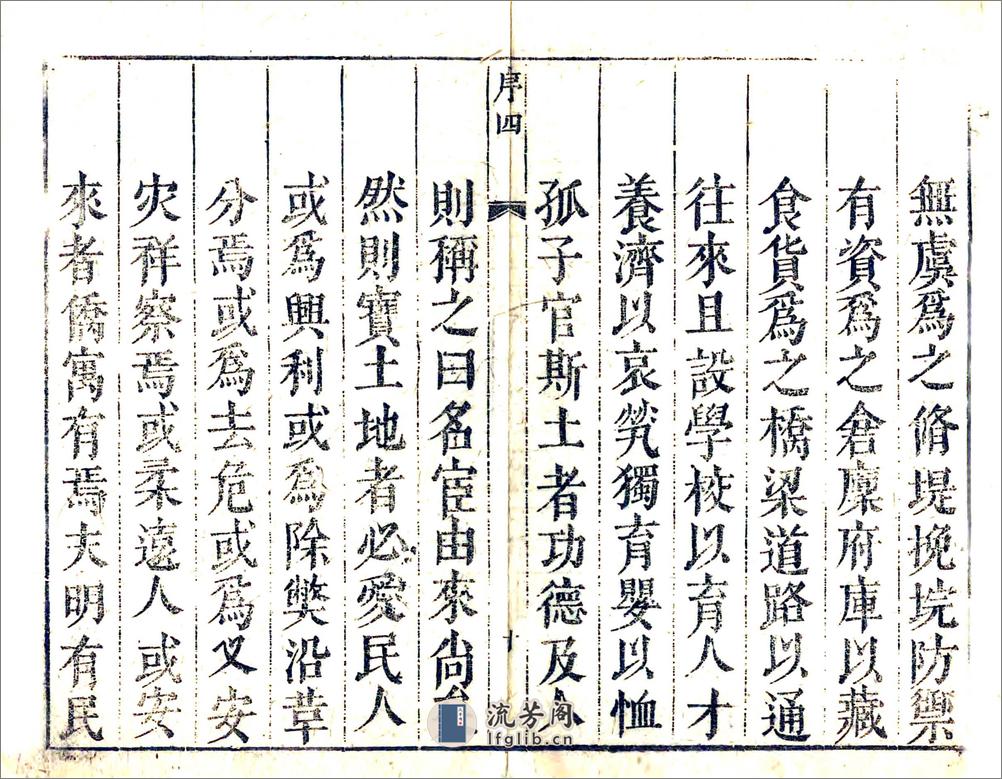 無虞爲之脩堤挽垸防禦
有資爲之倉廪府庫以藏
食貨爲之橋梁道路以通
往來且設學校以育人才
養濟以哀煢獨育嬰以恤
孤子官斯土者功德及人
序四
十
則稱之曰名宦由來尚矣
然則寶土地者必愛民人
或爲興利或爲除獘沿革
分焉或爲去危或爲乂安
灾祥察焉或柔遠人或安
來者僑寓有焉夫明有民
流芳阁
lfglib.cn